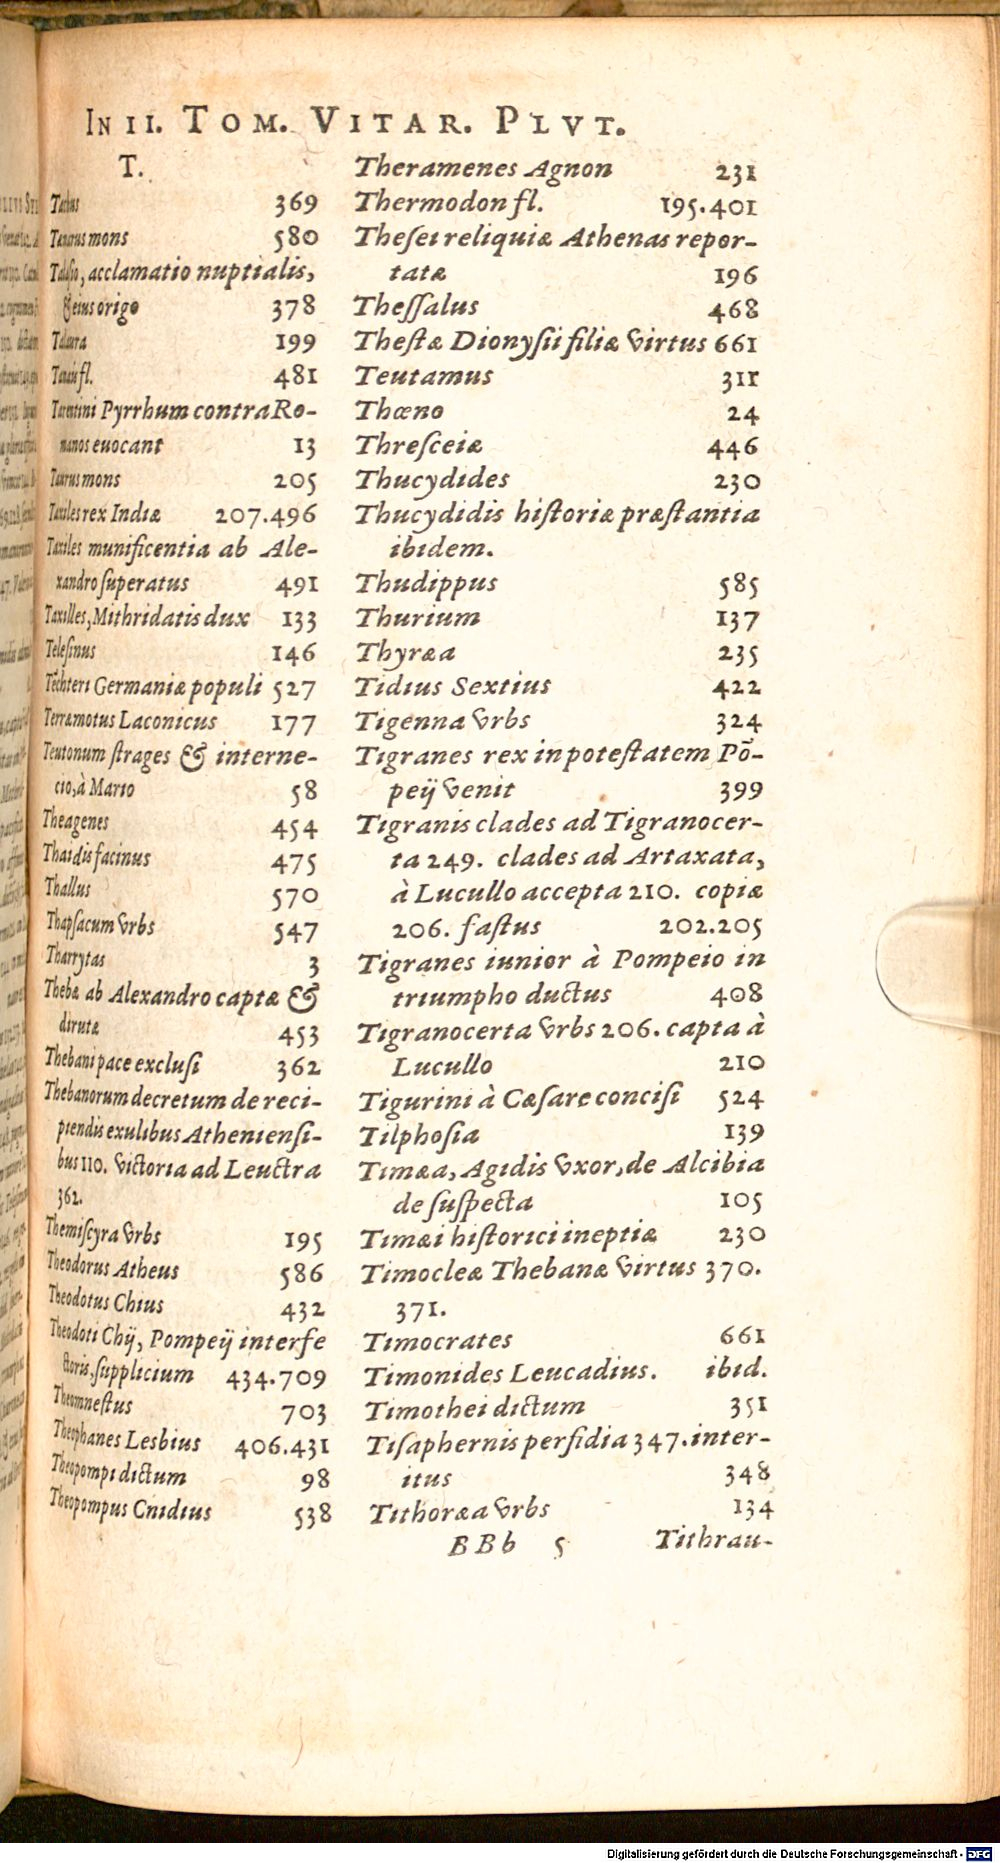 IN II. TOM. VITAR. PLVT.
T.
Tatius 369
Tænarus mons 580
Talasio, acclamatio nuptialis,
& eius origo 378
Talaura 199
Tanais fl. 481
Tarentini Pyrrhum contra Ro-
manos euocant 13
Taurus mons 205
Taxiles rex Indiæ 207.496
Taxiles munificentia ab Ale-
xandro superatus 491
Taxilles, Mithridatis dux 133
Telesinus 146
Tẽchteri Germaniæ populi 527
Terræmotus Laconicus 177
Teutonum strages & interne-
cio, à Mario 58
Theagenes 454
Thaidis facinus 475
Thallus 570
Thapsacum vrbs 547
Tharrytas 3
Thebæ ab Alexandro captæ &
dirutæ 453
Thebani pace exclusi 362
Thebanorum decretum de reci-
piendis exulibus Atheniensi-
bus 110. victoria ad Leuctra
362.
Themiscyra vrbs 195
Theodorus Atheus 586
Theodotus Chius 432
Theodoti Chij, Pompeij interfe
ctoris, supplicium 434.709
Theomnestus 703
Theophanes Lesbius 406.431
Theopompi dictum 98
Theopompus Cnidius 538
Theramenes Agnon 231
Thermodon fl. 195.401
Thesei reliquiæ Athenas repor-
tatæ 196
Thessalus 468
Thestæ Dionysii filiæ virtus 661
Teutamus 311
Thœno 24
Thresceiæ 446
Thucydides 230
Thucydidis historiæ præstantia
ibidem.
Thudippus 585
Thurium 137
Thyræa 235
Tidius Sextius 422
Tigenna vrbs 324
Tigranes rex in potestatem Põ-
peij venit 399
Tigranis clades ad Tigranocer-
ta 249. clades ad Artaxata,
à Lucullo accepta 210. copiæ
206. fastus 202.205
Tigranes iunior à Pompeio in
triumpho ductus 408
Tigranocerta vrbs 206. capta à
Lucullo 210
Tigurini à Cæsare concisi 524
Tilphosia 139
Timæa, Agidis vxor, de Alcibia
de suspecta 105
Timæi historici ineptiæ 230
Timocleæ Thebanæ virtus 370.
371.
Timocrates 661
Timonides Leucadius. ibid.
Timothei dictum 351
Tisaphernis perfidia 347. inter-
itus 348
Tithoræa vrbs 134
BBb 5 Tithrau-
Digitalisierung gefördert durch die Deutsche Forschungsgemeinschaft - DFG